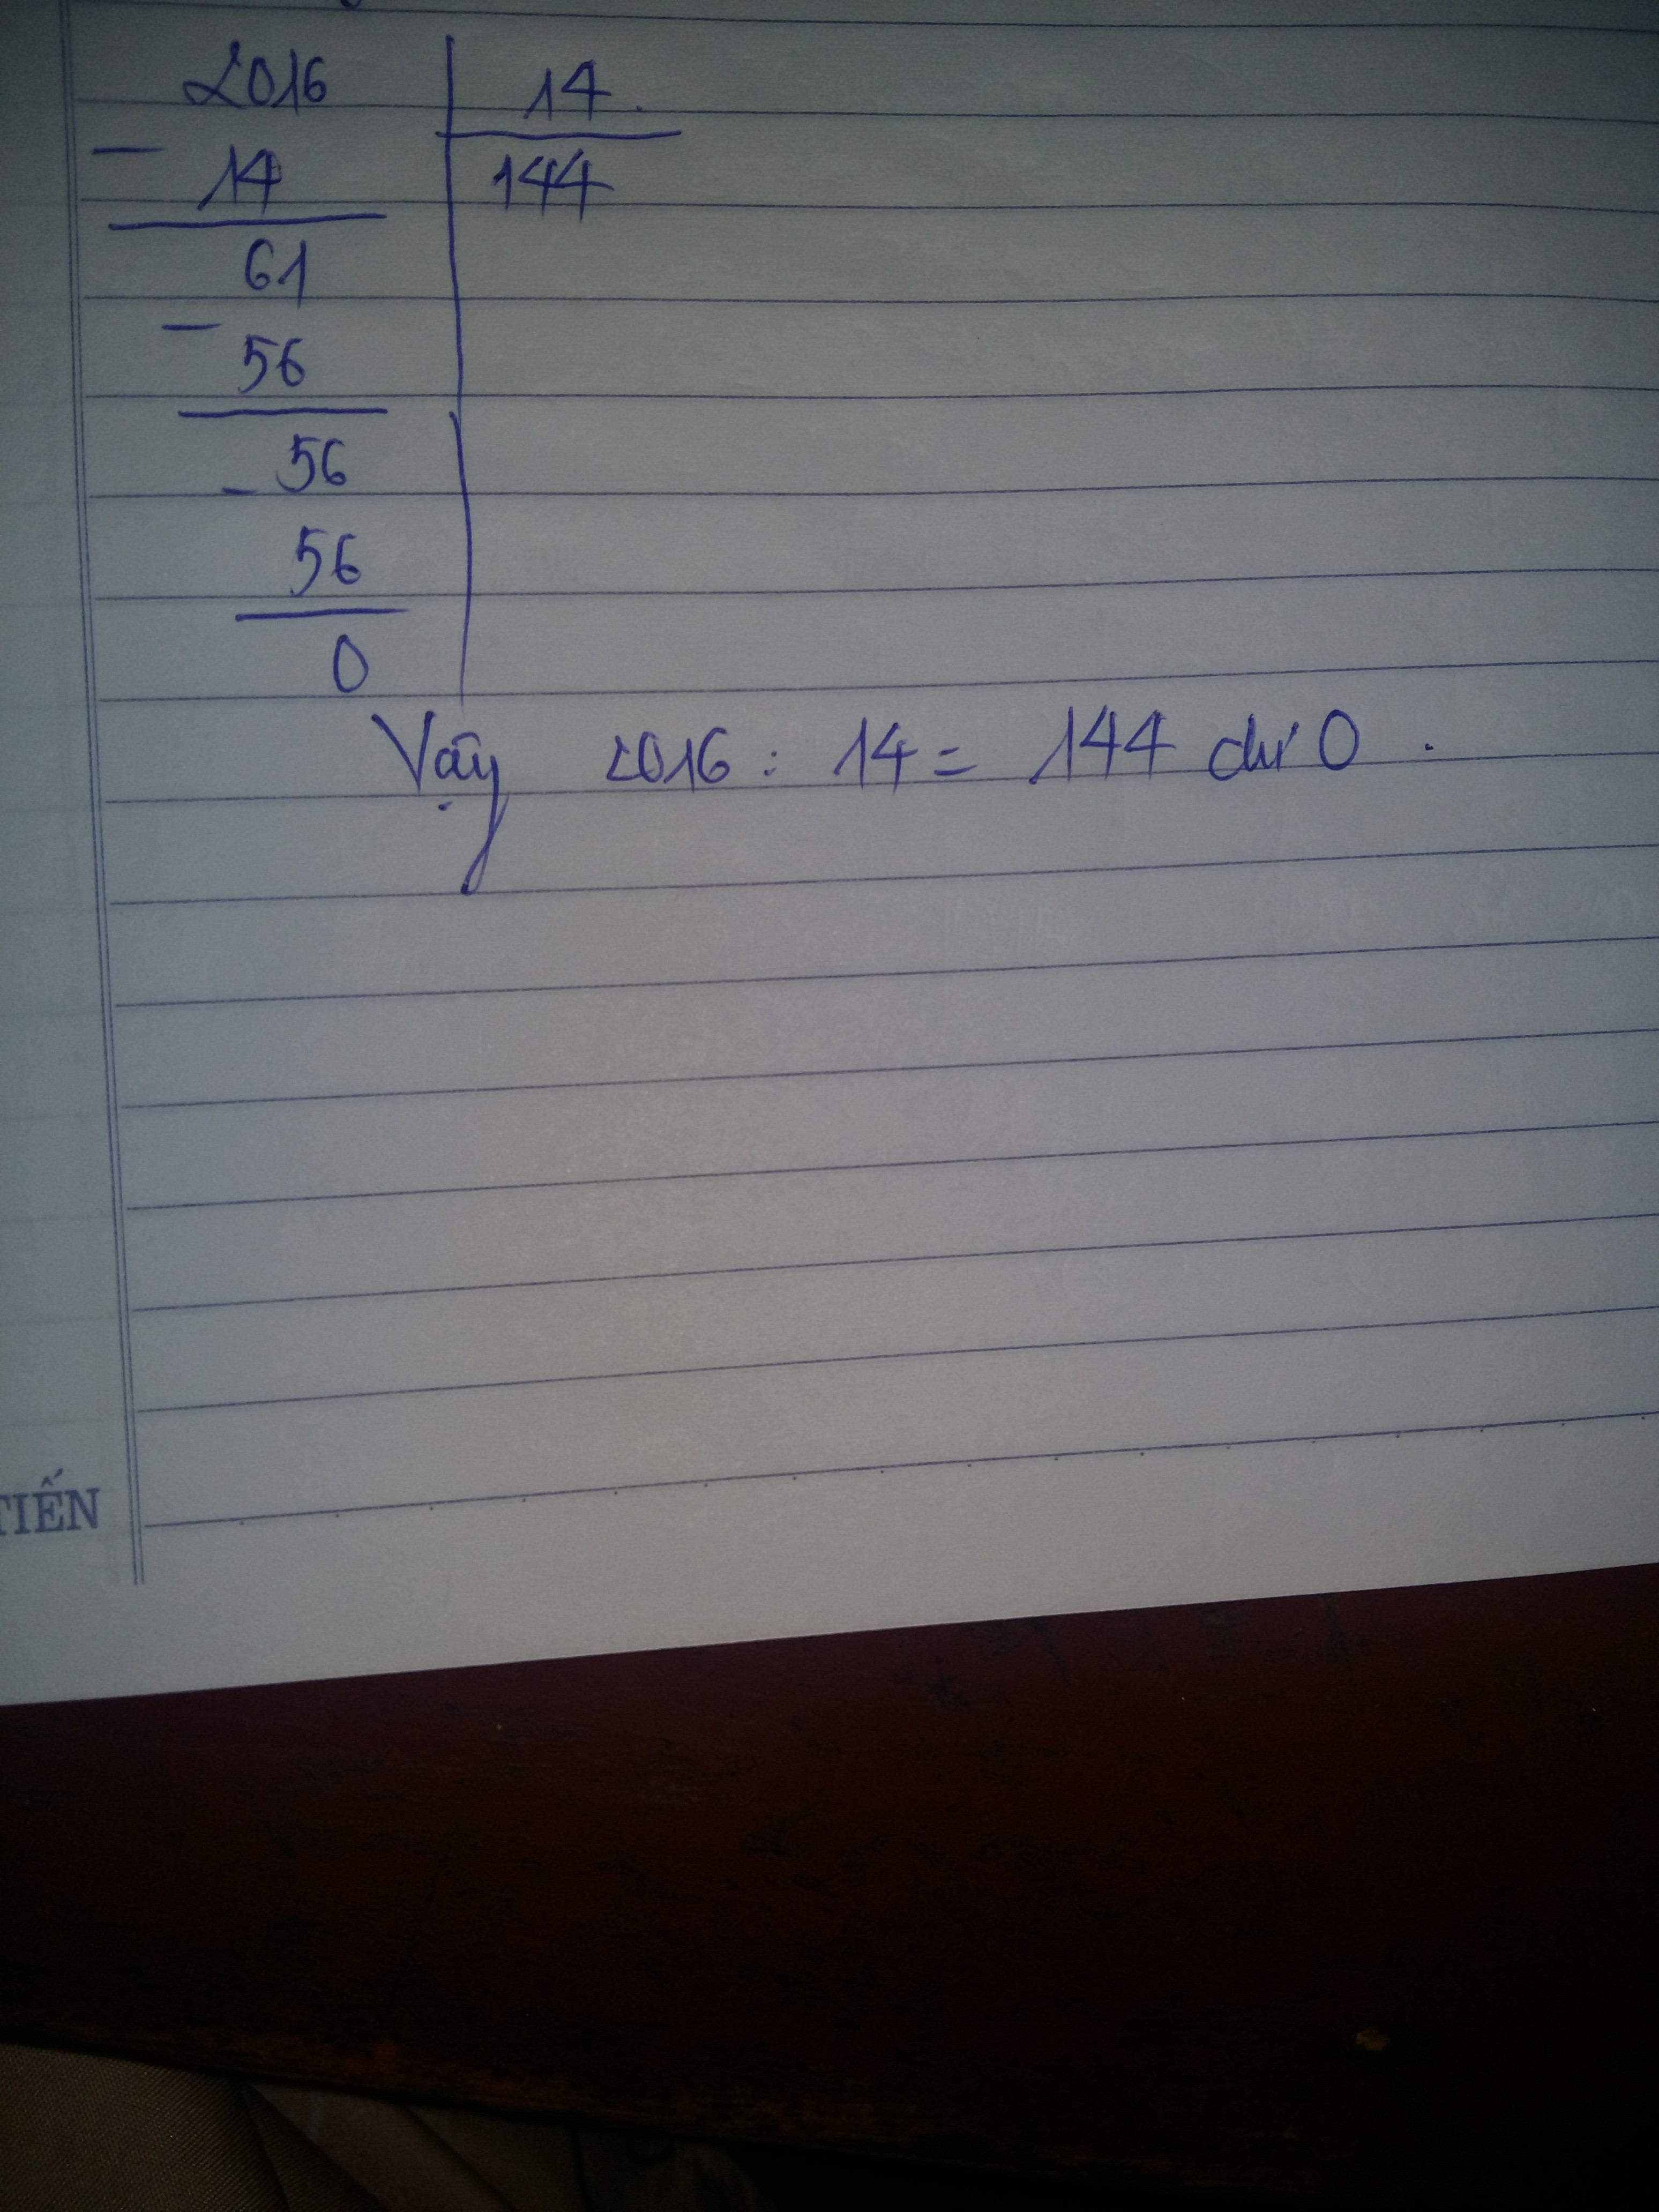 2016 14
- 14 144
61
- 56
56
- 56
0
Vậy 2016 : 14 = 144 dư 0 .
TIẾN